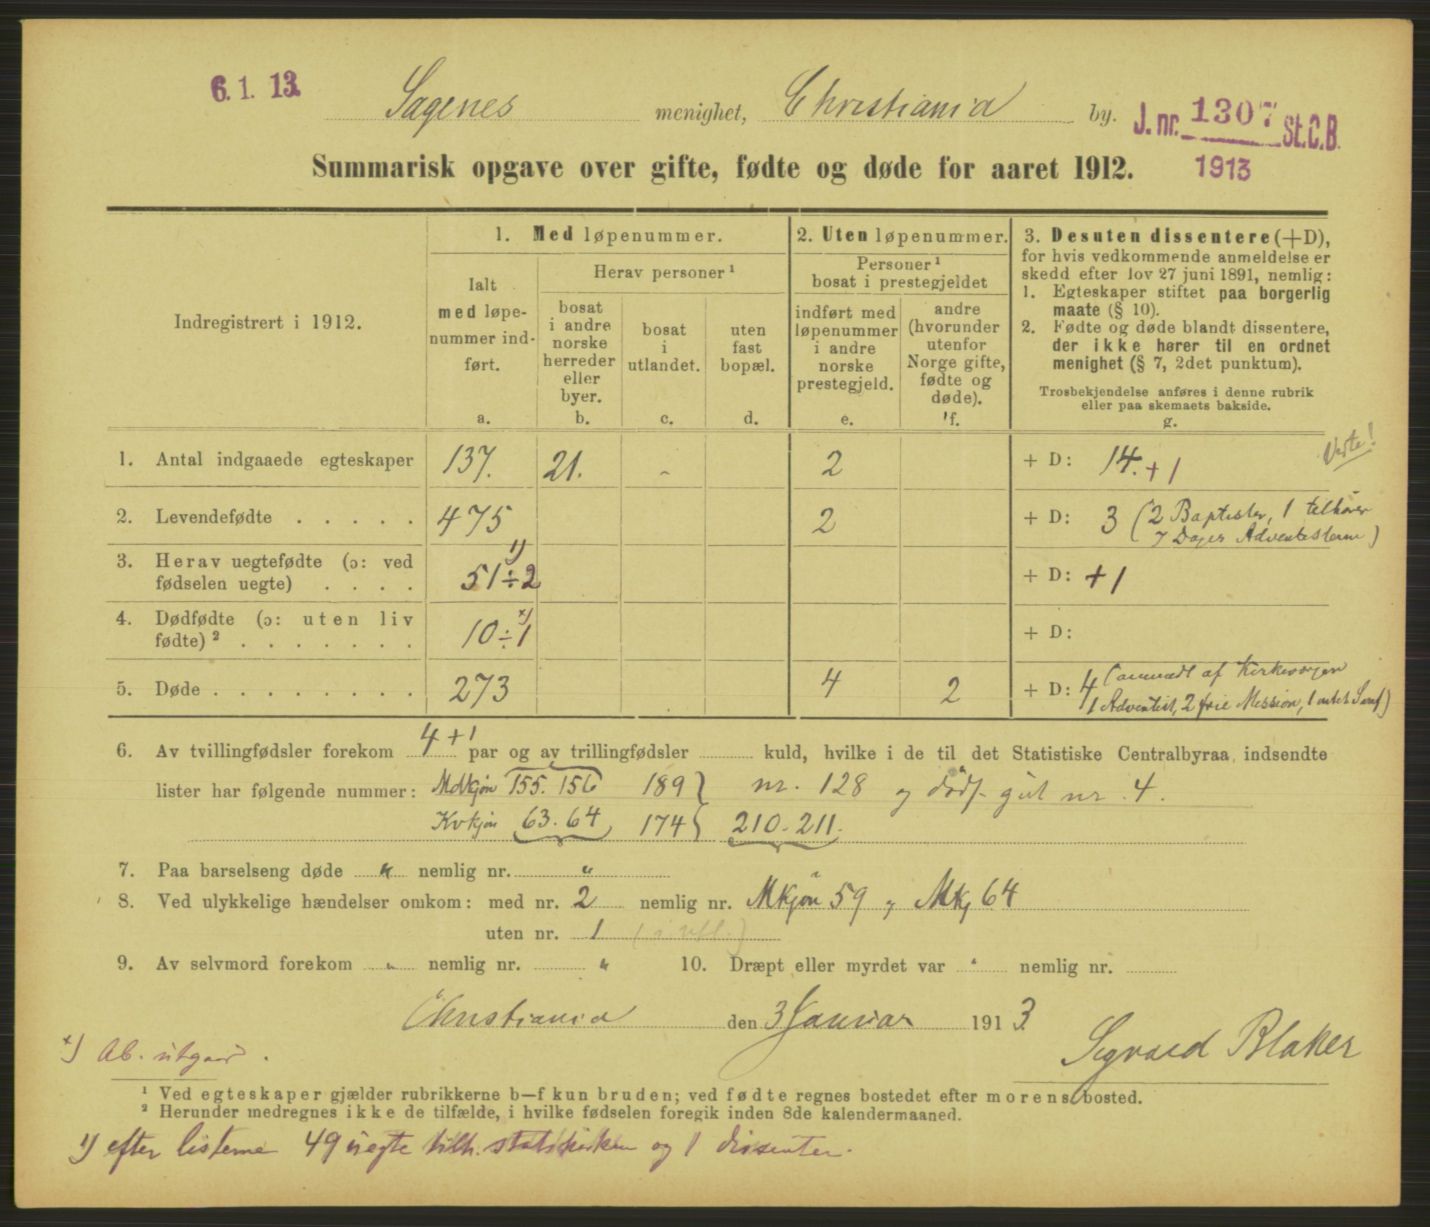 6. 1. 13. Sagenes menighet, Christiania by. J. nr. 1307 St. C. B.
1913
Summarisk opgave over gifte, fødte og døde for aaret 1912.
Indregistrert i 1912.
1. Med løpenummer.
Ialt
med løpe-
nummer ind-
ført.
a.
Herav personer ¹
bosat
i andre
norske
herreder
eller
byer.
b.
bosat
i
utlandet.
c.
uten
fast
bopæl.
d.
2. Uten løpenummer.
Personer ¹
bosat i prestegjeldet
indført med
løpenummer
i andre
norske
prestegjeld.
e.
andre
(hvorunder
utenfor
Norge gifte,
fødte og
døde).
f.
3. Desuten dissentere (+D),
for hvis vedkommende anmeldelse er
skedd efter lov 27 juni 1891, nemlig:
1. Egteskaper stiftet paa borgerlig
maate (§ 10).
2. Fødte og døde blandt dissentere,
der ikke hører til en ordnet
menighet (§ 7, 2det punktum).
Trosbekjendelse anføres i denne rubrik
eller paa skemaets bakside.
g.
1. Antal indgaaede egteskaper 137. 21. - 2 + D: 14. + 1
2. Levendefødte . . . . . 475 2 + D: 3 (2 Baptister, 1 tilhører
7 Dages Adventisterne)
3. Herav uegtefødte (ɔ: ved
fødselen uegte) . . . . 51 ÷ 2 1) + D: + 1
4. Dødfødte (ɔ: uten liv
fødte) ² . . . . . . . 10 ÷ 1 x) + D:
5. Døde . . . . . . . . . 273 4 2 + D: 4 (anmeldt af Kirkevergen
1 Adventist, 2 frie Mission, 1 udt. Samf)
6. Av tvillingfødsler forekom 4 + 1 par og av trillingfødsler kuld, hvilke i de til det Statistiske Centralbyraa indsendte
lister har følgende nummer: Mdkjøn 155. 156 189 } nr. 128 og dødf. gut nr. 4.
Kvkjøn 63. 64 174 } 210. 211.
7. Paa barselseng døde " nemlig nr. "
8. Ved ulykkelige hændelser omkom: med nr. 2 nemlig nr. Mkjøn 59 og Mkj 64
uten nr. 1
9. Av selvmord forekom " nemlig nr. " 10. Dræpt eller myrdet var " nemlig nr.
Christiania den 3 Januar 1913.
Sigvald Blaker
x) Ab. utgaar.
¹ Ved egteskaper gjælder rubrikkerne b—f kun bruden; ved fødte regnes bostedet efter morens bosted.
² Herunder medregnes ikke de tilfælde, i hvilke fødselen foregik inden 8de kalendermaaned.
1) efter listerne 49 uegte tilh. statskirken og 1 dissenter.